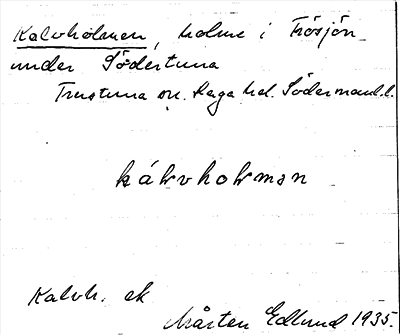 Kalvholmen, holme i Frösjön
under Södertuna
Frustuna sn. Daga hd. Södermanl. l.
kálvholmən
Kalvh. ek
Mårten Edlund 1935.